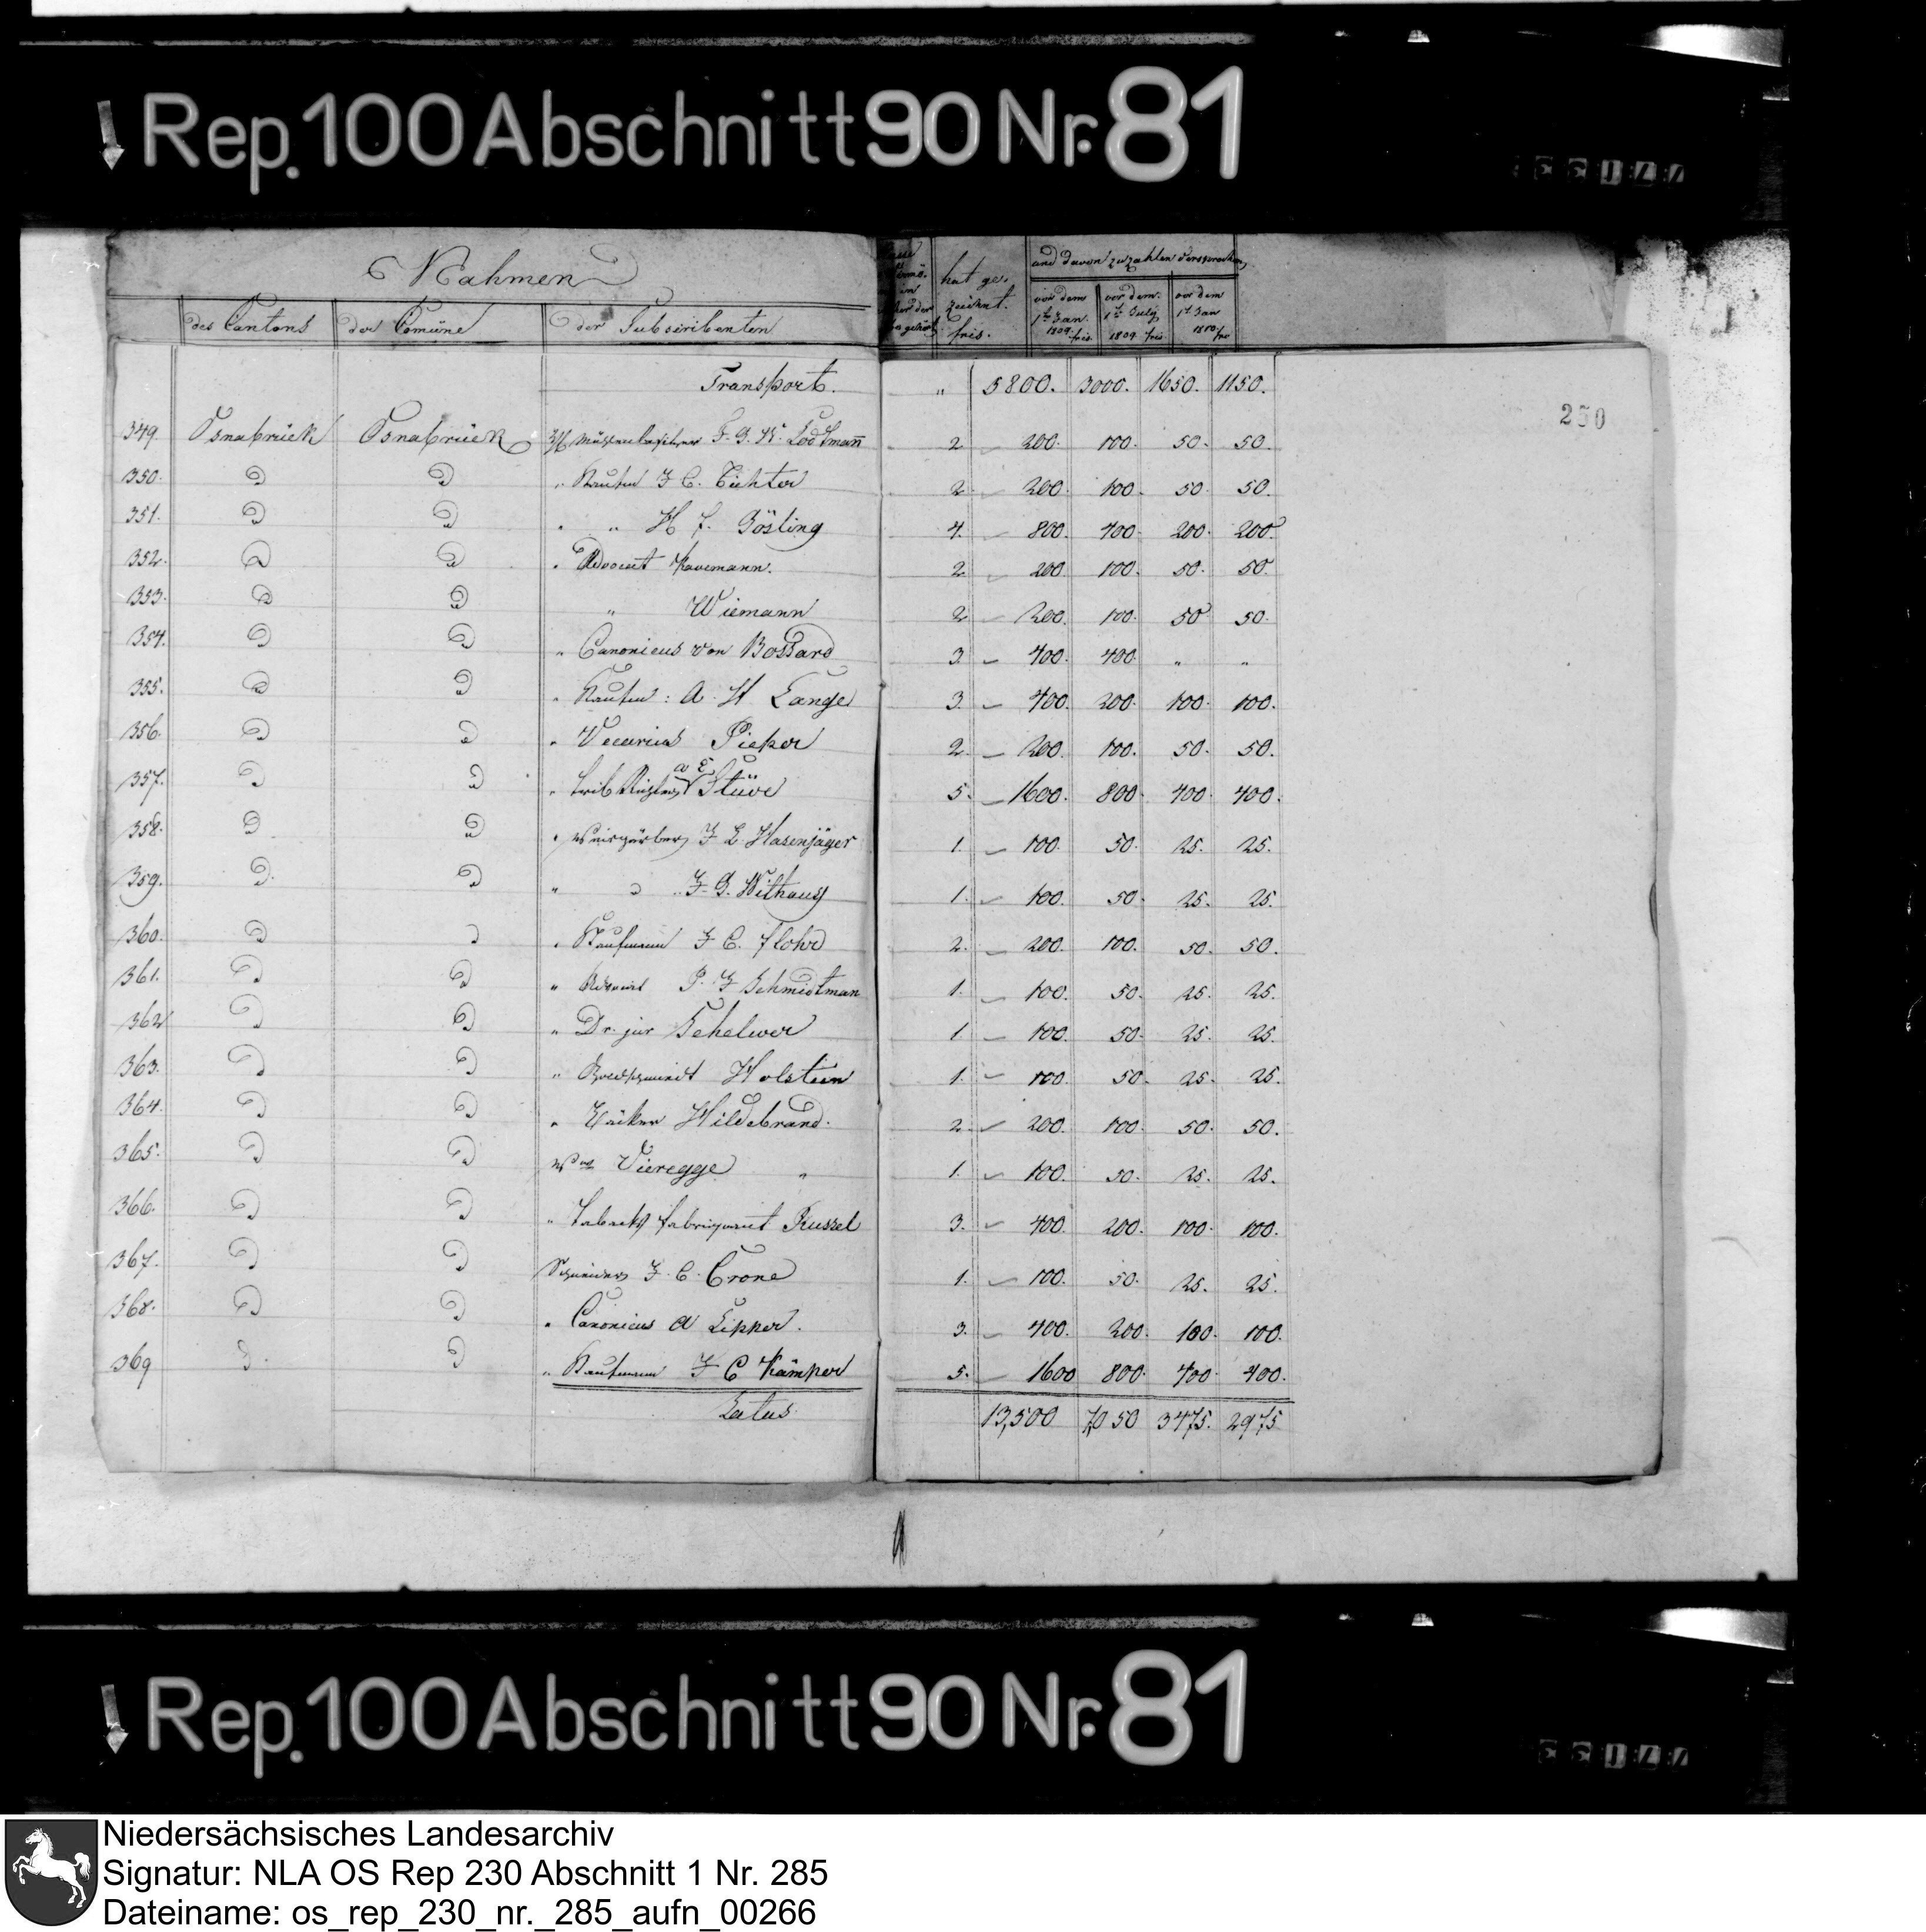 Rep. 100 Abschnitt 90 Nr. 81
Nahmen
des Cantons der Comüne der Subscribenten
hat ge, zeichnt. frcs.
und davon zu zahlen versprochen,
vor dem 1t Jan. 1809. frcs. vor dem 1t July 1809 frcs vor dem 1t Jan 1810 frc
250
Transport. " 5800. 3000. 1650. 1150.
349. Osnabrück Osnabrück Lodtmann 2 200. 100. 50. 50.
350. D D " Kaufm J C. Richter 2. 200. 100. 50. 50.
351. D D " " H F. Gösling 4. 800. 400. 200. 200
352. D D " Advocat Havemann. 2 200. 100. 50. 50.
353. D D " Wiemann 2 200. 100. 50 50.
354. D D " Canonicus von Bossard 3. 400. 400. " "
355. D D " Kaufm: A. H Lange 3. 400. 200. 100. 100.
356. D D " Pieper 2. 200. 100. 50. 50.
357. D D " Stüve 5. 1600. 800. 400. 400.
358. D D " Weisgärber J L. Hasenjäger 1. 100. 50. 25. 25.
359. D D " " J. G. Withaus 1. 100. 50. 25. 25.
360. D D " Kaufmann J C. Flohr 2. 200. 100. 50. 50.
361. D D " Advocat P. J Schmidtman 1. 100. 50. 25. 25.
362 D D " Dr. jur Schelwer 1. 100. 50. 25. 25.
363. D D " Goldschmidt Holstein 1. 100. 50. 25. 25.
364. D D " Hildebrand. 2. 200. 100. 50. 50.
365. D D Vieregge " 1. 100. 50. 25. 25.
366. D D " Tabacks fabriquant Kussel 3. 400. 200. 100. 100.
367. D D Schneider J. C. Crone 1. 100. 50. 25. 25.
368. D D " Canonicus A Lipper. 3. 400. 200. 100. 100.
369 D D " Kaufmann J C Kämper 5. 1600 800. 400. 400.
Latus 13,500 7050 3475. 2975
Rep. 100 Abschnitt 90 Nr. 81
Niedersächsisches Landesarchiv
Signatur: NLA OS Rep 230 Abschnitt 1 Nr. 285
Dateiname: os_rep_230_nr._285_aufn_00266